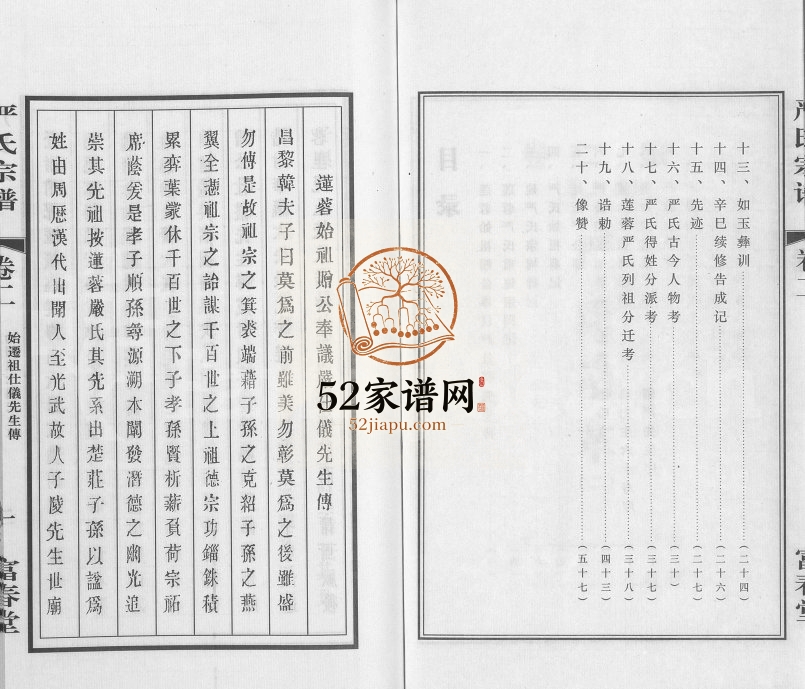 十三、如玉彝训……………………（二十四）
十四、辛巳续修告成记……………（二十六）
十五、先迹…………………………（二十七）
十六、严氏古今人物考……………（三十）
十七、严氏得姓分派考……………（三十七）
十八、莲蓉严氏列祖分迁考………（三十八）
十九、诰勅…………………………（四十三）
二十、像赞…………………………（五十七）
蓮蓉始祖贈公奉議嚴仕儀先生傳
昌黎韓夫子曰莫爲之前雖美勿彰莫爲之後雖盛
勿傳是故祖宗之箕裘端藉子孫之克紹子孫之燕
翼全憑祖宗之詒謀千百世之上祖德宗功錙銖積
累奕葉蒙休千百世之下子孝孫賢析薪負荷宗祏
席蔭爰是孝子順孫尋源溯本闡發潛德之幽光追
崇其先祖按蓮蓉嚴氏其先系出楚莊子孫以諡爲
姓由周歷漢代出聞人至光武故人子陵先生世廟
严氏宗谱
卷二
始遷祖仕儀先生傳
一
富春堂
严氏宗谱
卷二
富春堂
52家谱网
52jiapu.com